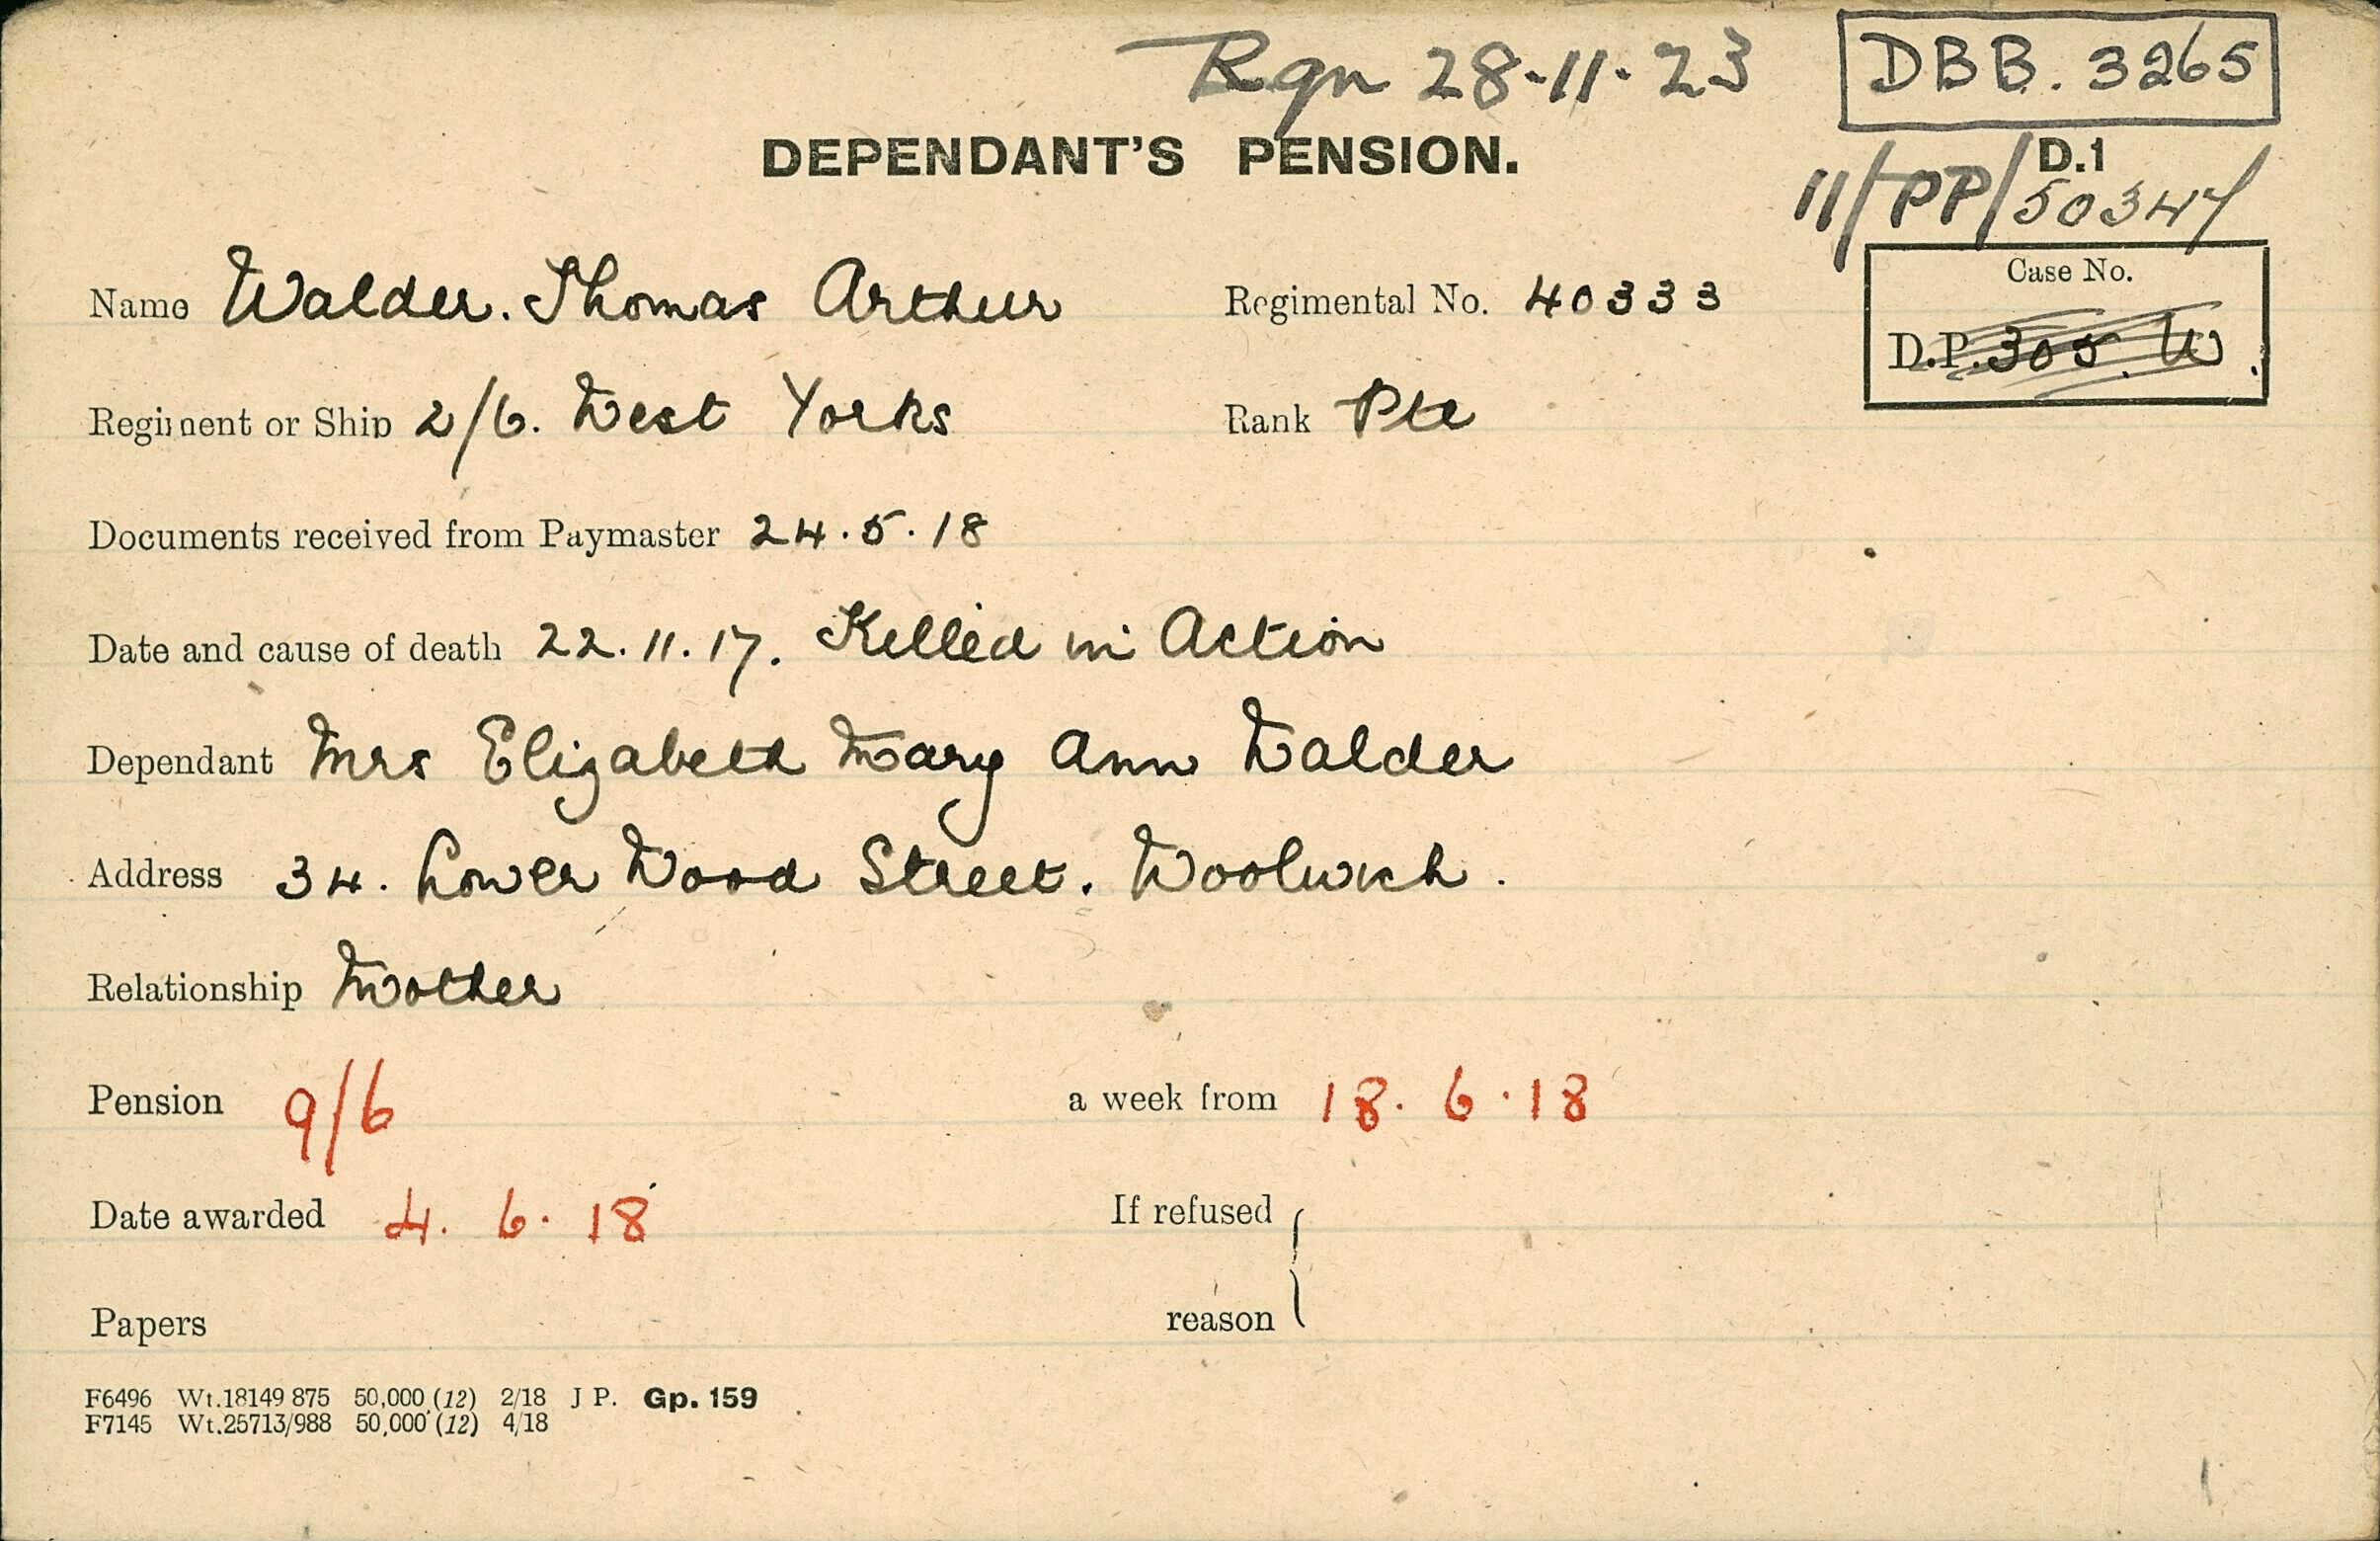 Rgn 28-11-23
DBB. 3265
DEPENDANT'S PENSION.
D.1
11/PP/50347
Name Walder. Thomas Arthur Regimental No. 40333
Case No.
D.P. 305. W.
Regiment or Ship 2/6. West Yorks Rank Pte
Documents received from Paymaster 24.5.18
Date and cause of death 22.11.17. Killed in Action
Dependant Mrs Elizabeth Mary Ann Walder
Address 34. Lower Wood Street. Woolwich.
Relationship Mother
Pension 9/6 a week from 18.6.18
Date awarded 4.6.18 If refused
Papers reason
F6496 Wt.18149 875 50,000 (12) 2/18 J P. Gp. 159
F7145 Wt.25713/988 50,000 (12) 4/18